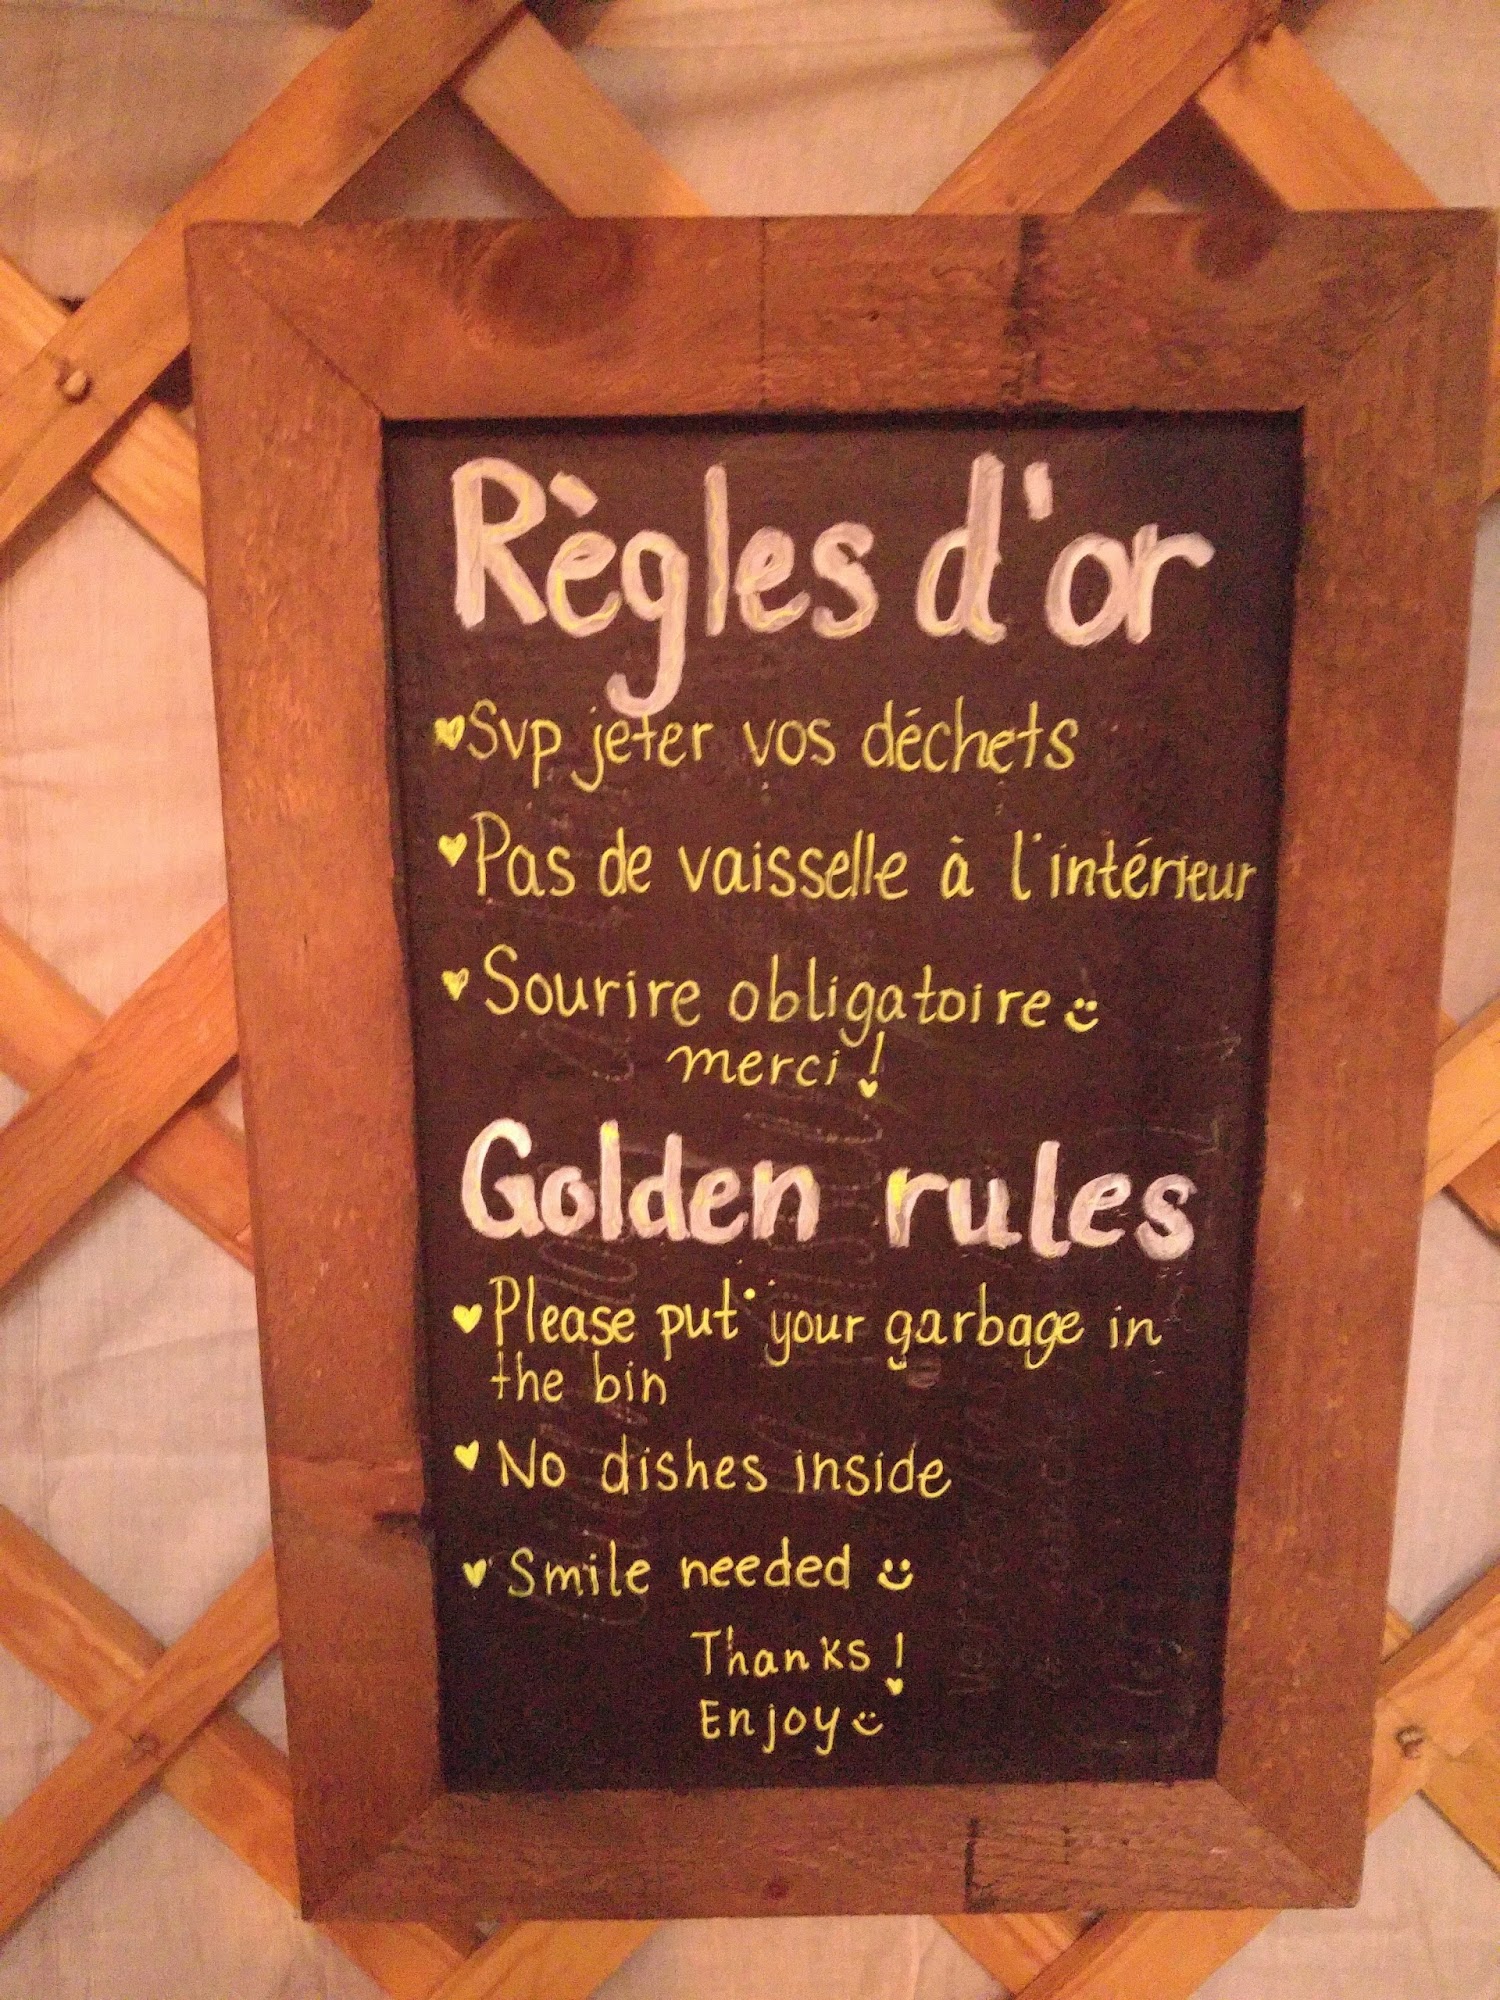 Règles d'or
Svp jeter vos déchets
Pas de vaisselle à l'intérieur
Sourire obligatoire
merci!
Golden rules
Please put your garbage in
the bin
No dishes inside
Smile needed
Thanks!
Enjoy